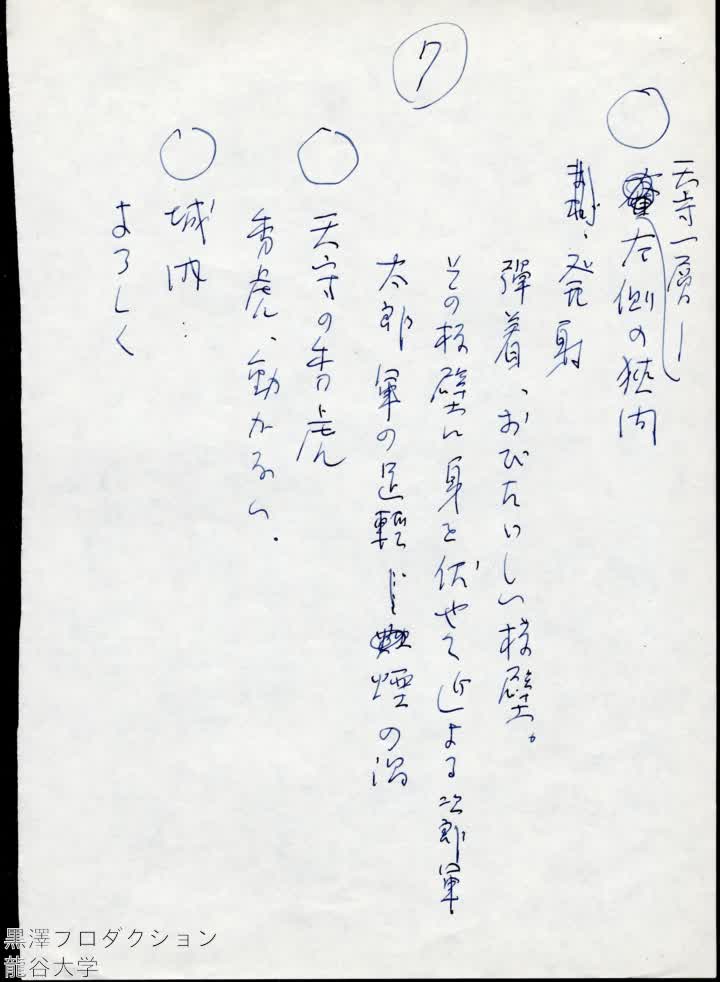 7
天守一層
左側の狭間
発射
弾着、おびただしい桜壁。
その桜壁に身を伏せて近よる次郎軍
太郎軍の足軽 煙の渦
天守の秀虎
秀虎、動かない.
城内
よろしく
黒澤プロダクション
龍谷大学